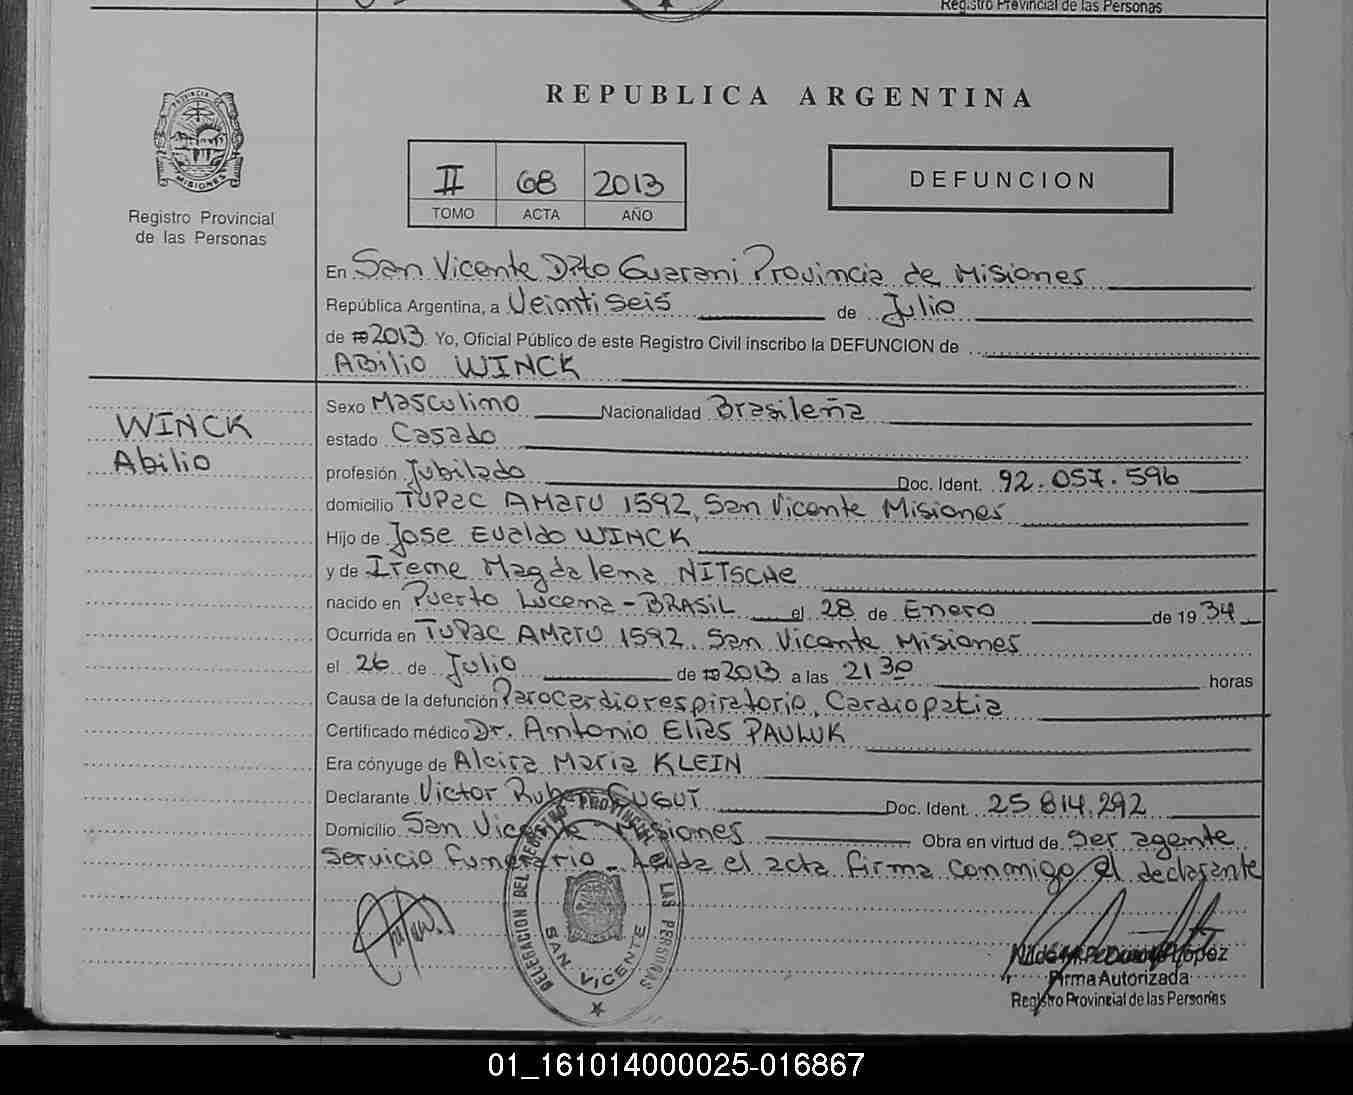 Registro Provincial de las Personas
REPUBLICA ARGENTINA
PROVINCIA DE MISIONES
Registro Provincial
de las Personas
II 68 2013
TOMO ACTA AÑO
DEFUNCION
En San Vicente Dpto Guarani Provincia de Misiones
República Argentina, a Veintiseis de Julio
de 2013. Yo, Oficial Público de este Registro Civil inscribo la DEFUNCION de
Abilio WINCK
WINCK
Abilio
Sexo Masculino Nacionalidad Brasileña
estado Casado
profesión Jubilado Doc. Ident. 92.057.596
domicilio TUPac AMaru 1592, San Vicente Misiones
Hijo de Jose Evaldo WINCK
y de Irene Magdalena NITSCHe
nacido en Puerto Lucena - BRASiL el 28 de Enero de 1934
Ocurrida en TUPac AMaru 1592. San Vicente Misiones
el 26 de Julio de 2013 a las 21 30 horas
Causa de la defunción Parocardiorespiratorio, Cardiopatia
Certificado médico Dr. Antonio Elias PAULUK
Era cónyuge de Alcira Maria KLEIN
Declarante Victor Ruben CUGUT Doc. Ident. 25 814.292
Domicilio San Vicente - Misiones Obra en virtud de ser agente
servicio funerario - Leida el acta firma conmigo el declarante
DELEGACION DEL REGISTRO PROVINCIAL DE LAS PERSONAS
SAN VICENTE
López
Firma Autorizada
Registro Provincial de las Personas
01_161014000025-016867